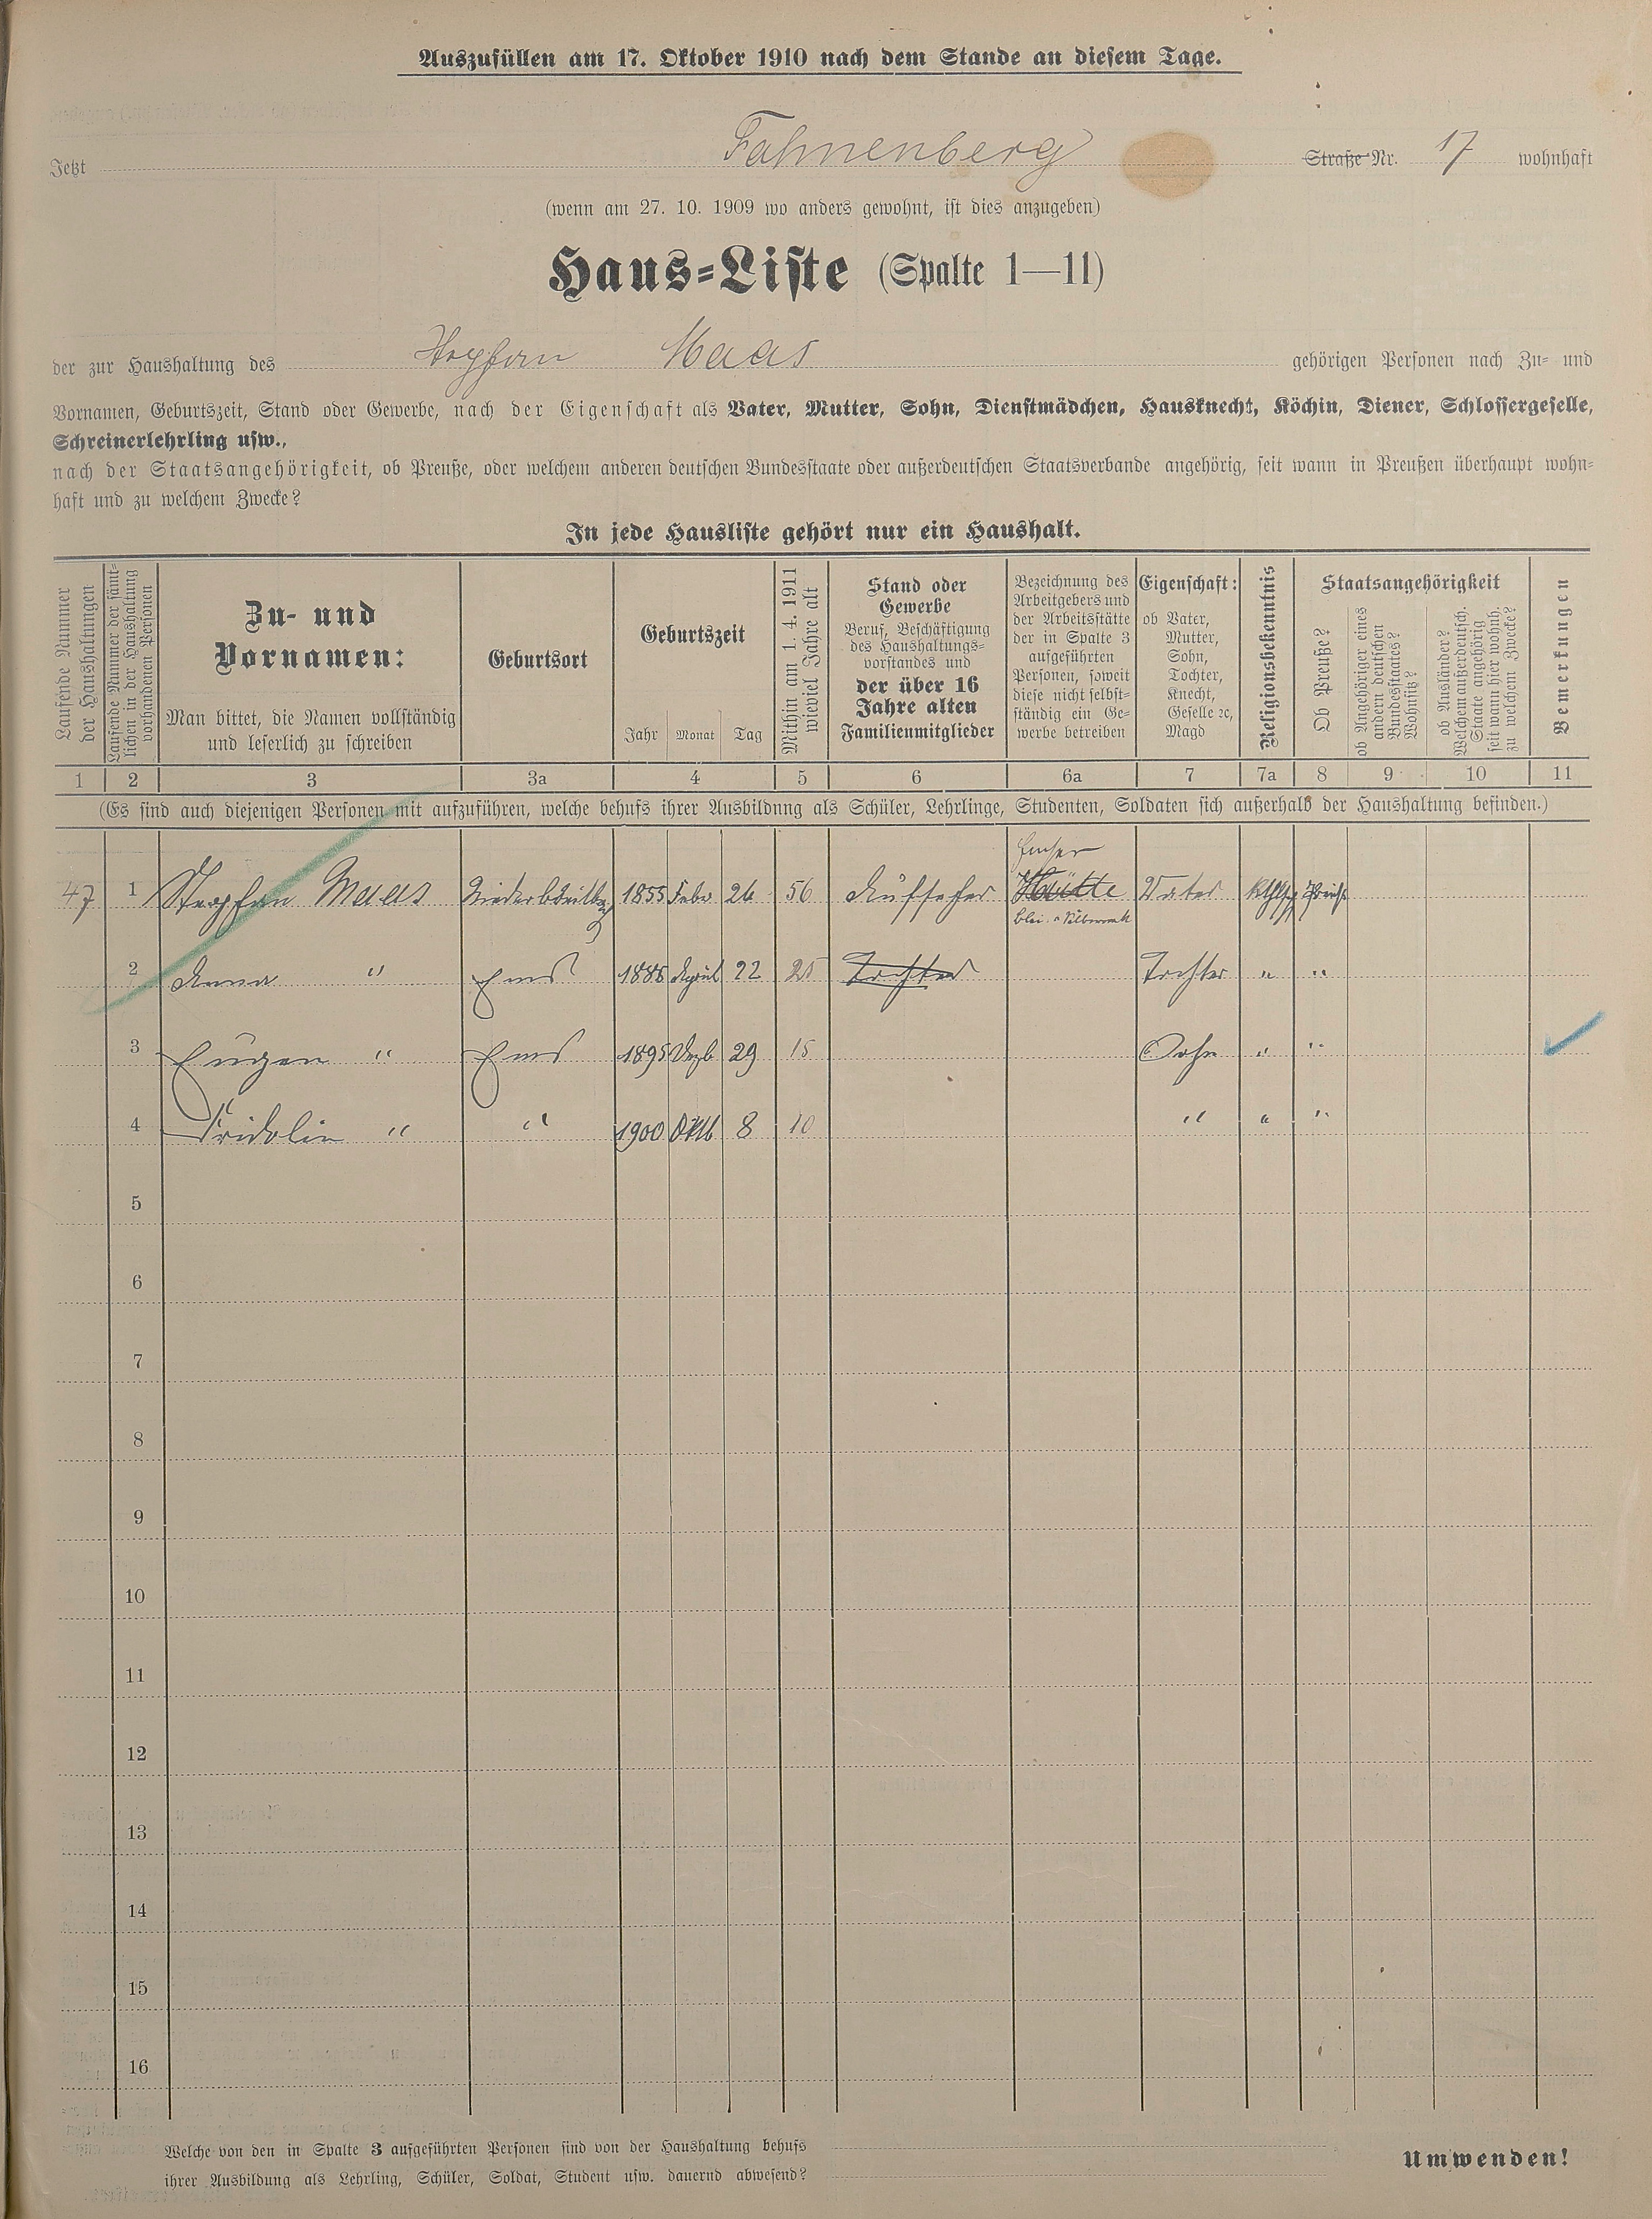 Auszufüllen am 17. Oktober 1910 nach dem Stande an diesem Tage.
Jetzt Fahnenberg Straße Nr. 17 wohnhaft
(wenn am 27. 10. 1909 wo anders gewohnt, ist dies anzugeben)
Haus-Liste (Spalte 1—11)
der zur Haushaltung des Stephan Maas gehörigen Personen nach Zu- und
Vornamen, Geburtszeit, Stand oder Gewerbe, nach der Eigenschaft als Vater, Mutter, Sohn, Dienstmädchen, Hausknecht, Köchin, Diener, Schlossergeselle,
Schreinerlehrling usw.,
nach der Staatsangehörigkeit, ob Preuße, oder welchem anderen deutschen Bundesstaate oder außerdeutschen Staatsverbande angehörig, seit wann in Preußen überhaupt wohn-
haft und zu welchem Zwecke?
In jede Hausliste gehört nur ein Haushalt.
Laufende Nummer
der Haushaltungen
Laufende Nummer der sämt-
lichen in der Haushaltung
vorhandenen Personen
Zu- und
Vornamen:
Man bittet, die Namen vollständig
und leserlich zu schreiben
Geburtsort
Geburtszeit
Jahr Monat Tag
Mithin am 1. 4. 1911
wieviel Jahre alt
Stand oder
Gewerbe
Beruf, Beschäftigung
des Haushaltungs-
vorstandes und
der über 16
Jahre alten
Familienmitglieder
Bezeichnung des
Arbeitgebers und
der Arbeitsstätte
der in Spalte 3
aufgeführten
Personen, soweit
diese nicht selbst-
ständig ein Ge-
werbe betreiben
Eigenschaft:
ob Vater,
Mutter,
Sohn,
Tochter,
Knecht,
Geselle ꝛc,
Magd
Religionsbekenntnis
Staatsangehörigkeit
Ob Preuße?
ob Angehöriger eines
andern deutschen
Bundesstaates?
Wohnsitz?
ob Ausländer?
Welchem außerdeutsch.
Staate angehörig
seit wann hier wohnh.
zu welchem Zwecke?
Bemerkungen
1 2 3 3a 4 5 6 6a 7 7a 8 9 10 11
(Es sind auch diejenigen Personen mit aufzuführen, welche behufs ihrer Ausbildung als Schüler, Lehrlinge, Studenten, Soldaten sich außerhalb der Haushaltung befinden.)
Emser
47 1 Stephan Maas 1855 Febr 26 56 Aufseher Hütte Vater
Blei- u Silberwerk
2 Anna " Ems 1885 April 22 25 Tochter Tochter " "
3 Eugen " Ems 1895 Dezb 29 15 Sohn " "
4 Fridolin " " 1900 Oktb 8 10 " " "
5
6
7
8
9
10
11
12
13
14
15
16
Welche von den in Spalte 3 aufgeführten Personen sind von der Haushaltung behufs
ihrer Ausbildung als Lehrling, Schüler, Soldat, Student usw. dauernd abwesend?
Umwenden!